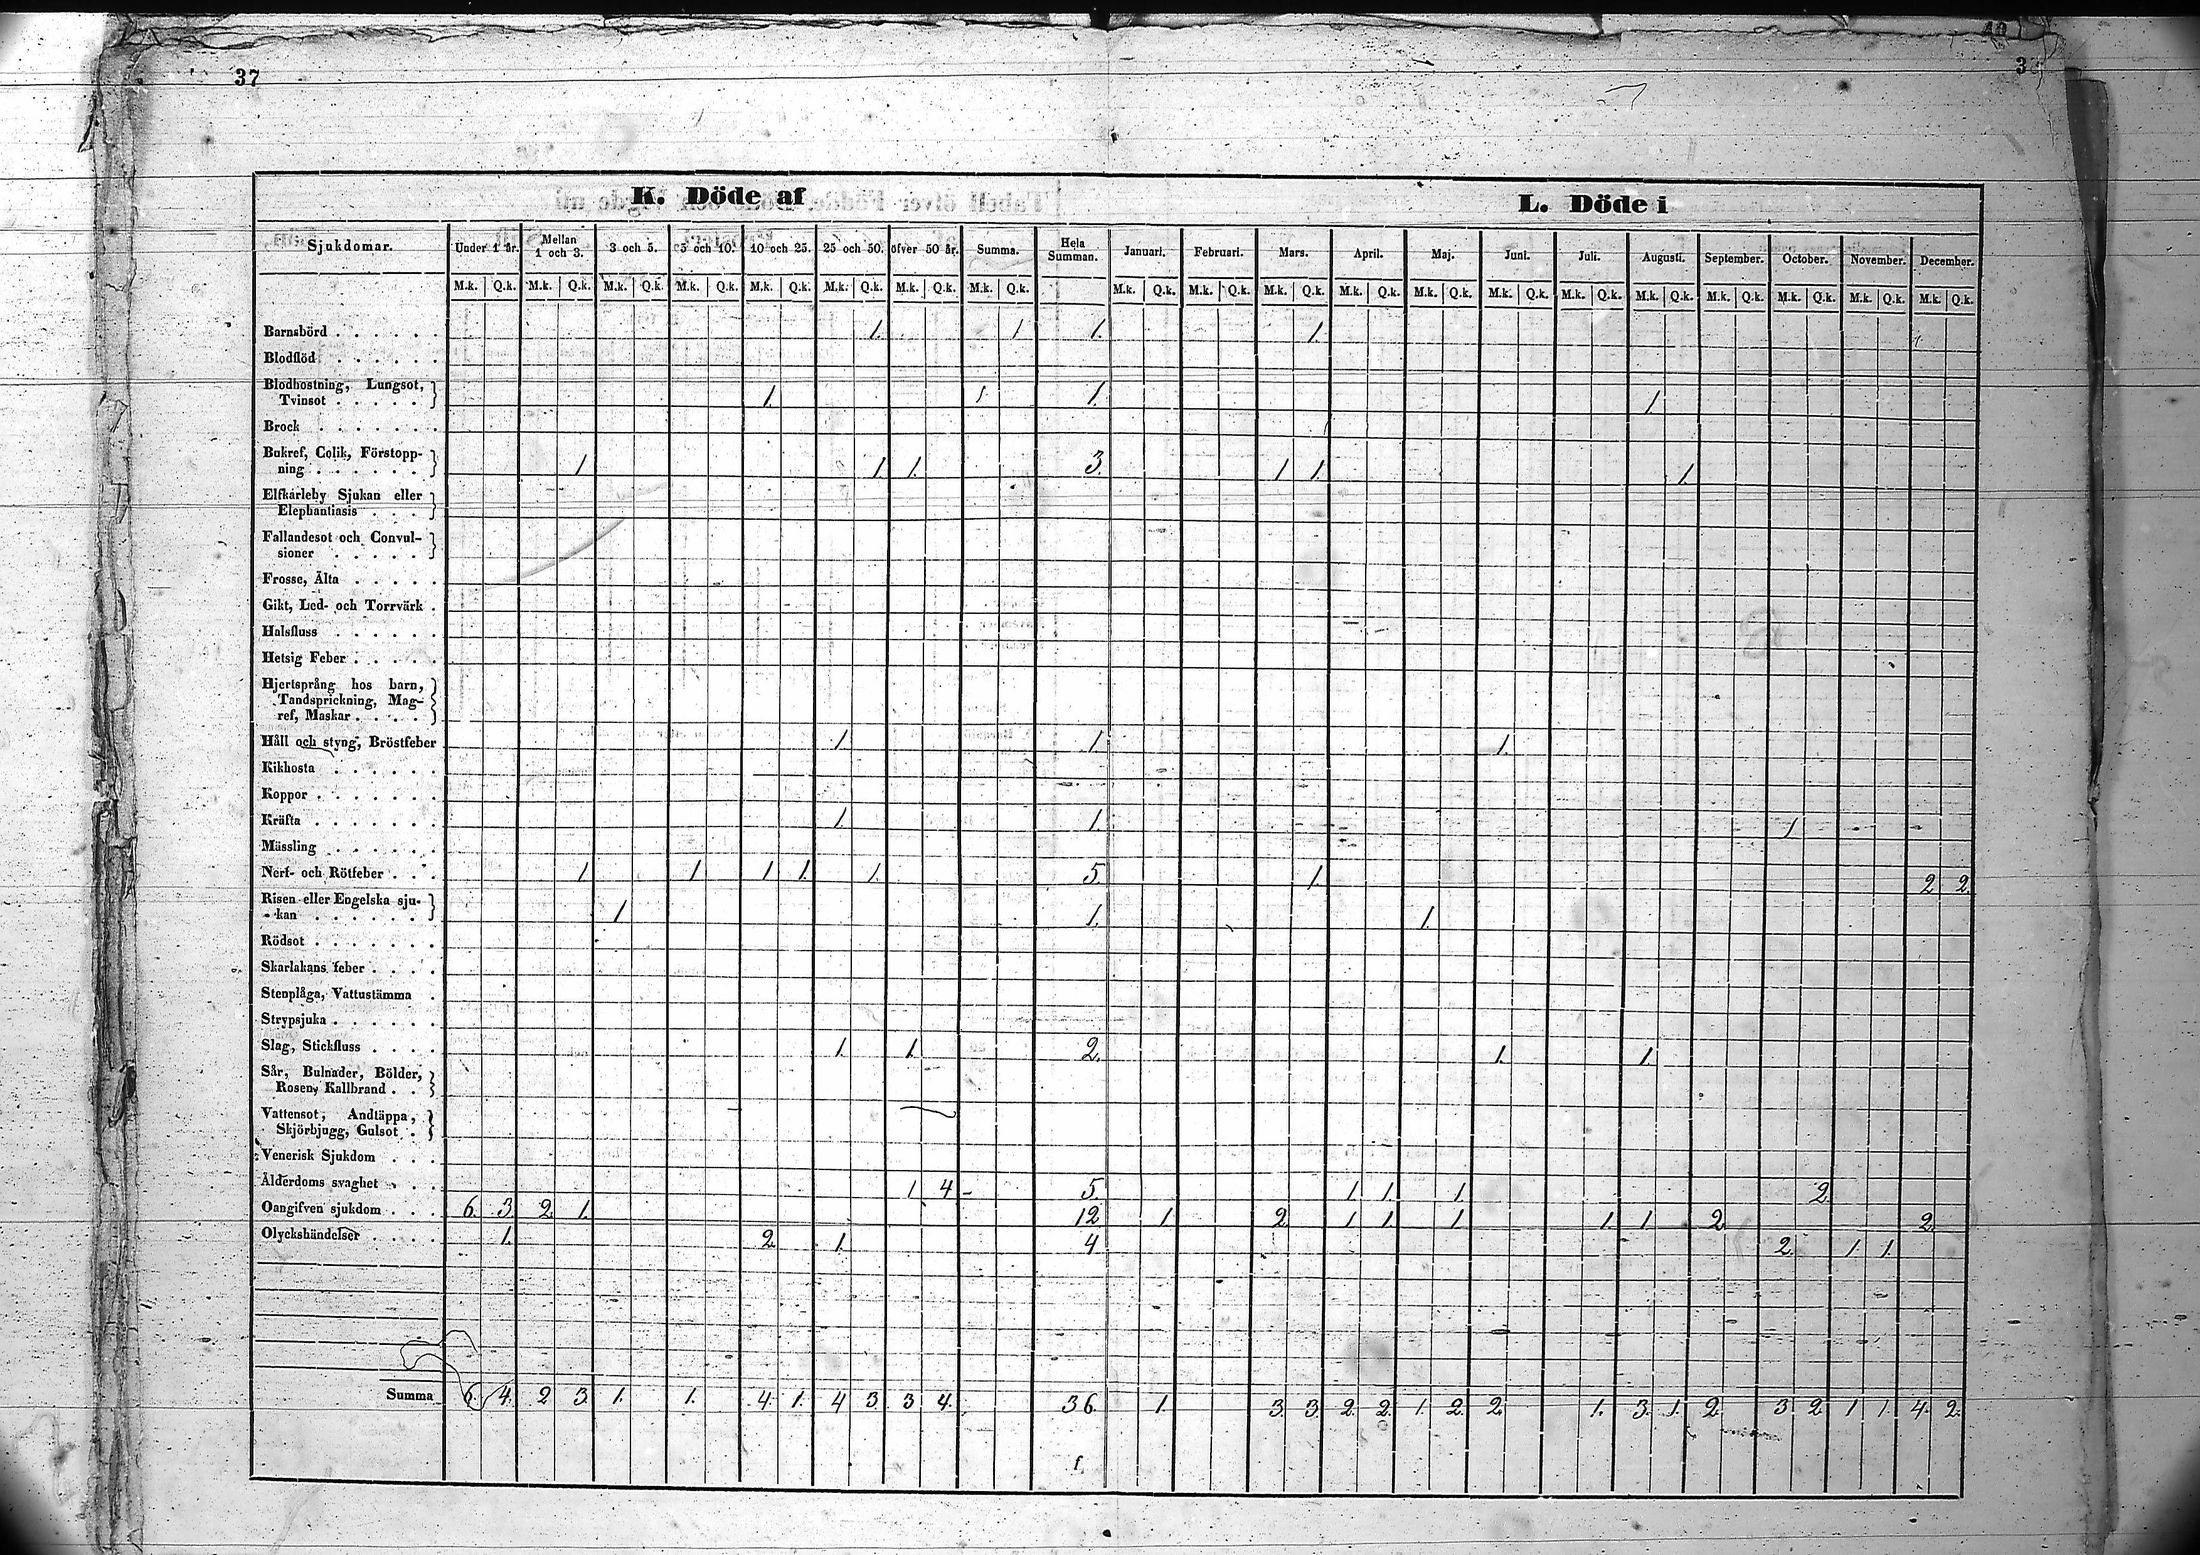 37
K. Döde af
L. Döde i
Sjukdomar. Under 1 år. Mellan 1 och 3. 3 och 5. 5 och 10. 10 och 25. 25 och 50. öfver 50 år. Summa. Hela Summan. Januari. Februari. Mars. April. Maj. Juni. Juli. Augusti. September. October. November. December.
M.k. Q.k. M.k. Q.k. M.k. Q.k. M.k. Q.k. M.k. Q.k. M.k. Q.k. M.k. Q.k. M.k. Q.k. M.k. Q.k. M.k. Q.k. M.k. Q.k. M.k. Q.k. M.k. Q.k. M.k. Q.k. M.k. Q.k. M.k. Q.k. M.k. Q.k. M.k. Q.k. M.k. Q.k. M.k. Q.k.
Barnsbörd . . . . . . 1. 1 1. 1.
Blodflöd . . . . . .
Blodhostning, Lungsot,
Tvinsot . . . . . 1. 1. 1. 1
Brock . . . . . . .
Bukref, Colik, Förstopp-
ning . . . . . . 1 1 1. 3. 1 1. 1
Elfkarleby Sjukan eller
Elephantiasis . . .
Fallandesot och Convul-
sioner . . . . .
Frosse, Älta . . . . .
Gikt, Led- och Torrvärk .
Halsfluss . . . . . .
Hetsig Feber . . . . .
Hjertsprång hos barn,
Tandsprickning, Mag-
ref, Maskar . . . . .
Håll och styng, Bröstfeber 1 1. 1.
Kikhosta . . . . . .
Koppor . . . . . . .
Kräfta . . . . . . . 1. 1. 1
Mässling . . . . . .
Nerf- och Rötfeber . . . 1 1 1 1. 1. 5. 1. 2 2.
Risen eller Engelska sju-
kan . . . . . . 1 1. 1.
Rödsot . . . . . . .
Skarlakans feber . . . .
Stenplåga, Vattustämma .
Strypsjuka . . . . . .
Slag, Stickfluss . . . . 1. 1. 2. 1. 1.
Sår, Bulnader, Bölder,
Rosen, Kallbrand . .
Vattensot, Andtäppa,
Skjörbjugg, Gulsot . .
Venerisk Sjukdom . . .
Ålderdoms svaghet . . . 1 4 5. 1 1. 1. 2.
Oangifven sjukdom . . . 6. 3 2. 1. 12. 1 2. 1 1 1 1 1 2. 2.
Olyckshändelser . . . . 1. 2. 1. 4 2. 1. 1.
Summa 6. 4. 2 3. 1. 1. 4. 1. 4 3. 3 4. 36. 1. 3. 3. 2. 2. 1. 2. 2. 1. 3. 1. 2. 3. 2. 1 1. 4. 2.